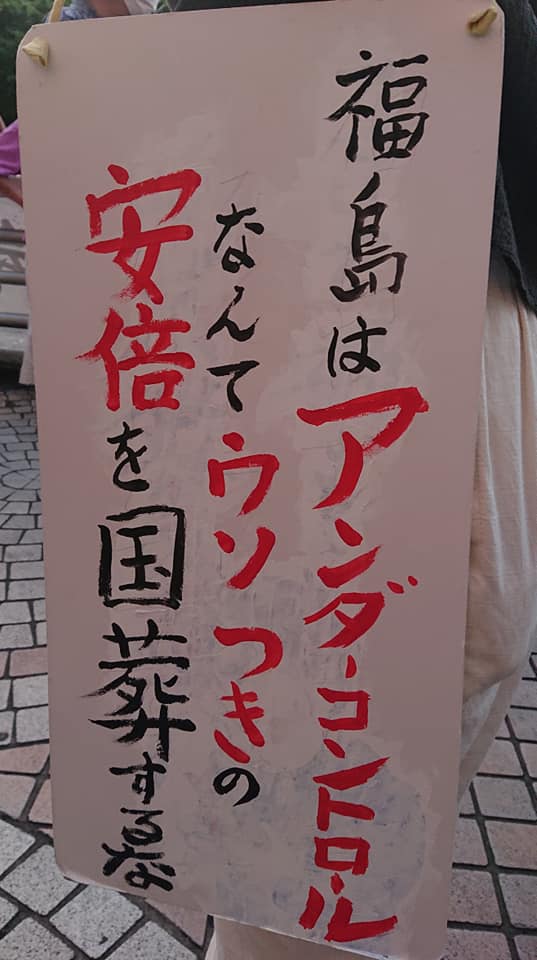 福島はアンダーコントロール
なんてウソつきの
安倍を国葬するな